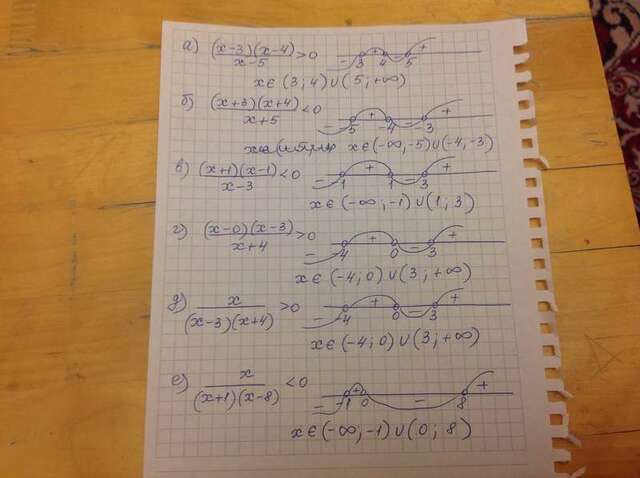 а) (x-3)(x-4)/x-5 > 0 - 3 + 4 - 5 +
x ∈ (3; 4) ∪ (5; +∞)
б) (x+3)(x+4)/x+5 < 0 - -5 + -4 - -3 +
x ∈ (-∞, -5) ∪ (-4, -3)
в) (x+1)(x-1)/x-3 < 0 - -1 + 1 - 3 +
x ∈ (-∞, -1) ∪ (1, 3)
г) (x-0)(x-3)/x+4 > 0 - -4 + 0 - 3 +
x ∈ (-4; 0) ∪ (3; +∞)
д) x/(x-3)(x+4) > 0 - -4 + 0 - 3 +
x ∈ (-4; 0) ∪ (3; +∞)
е) x/(x+1)(x-8) < 0 - -1 + 0 - 8 +
x ∈ (-∞, -1) ∪ (0; 8)